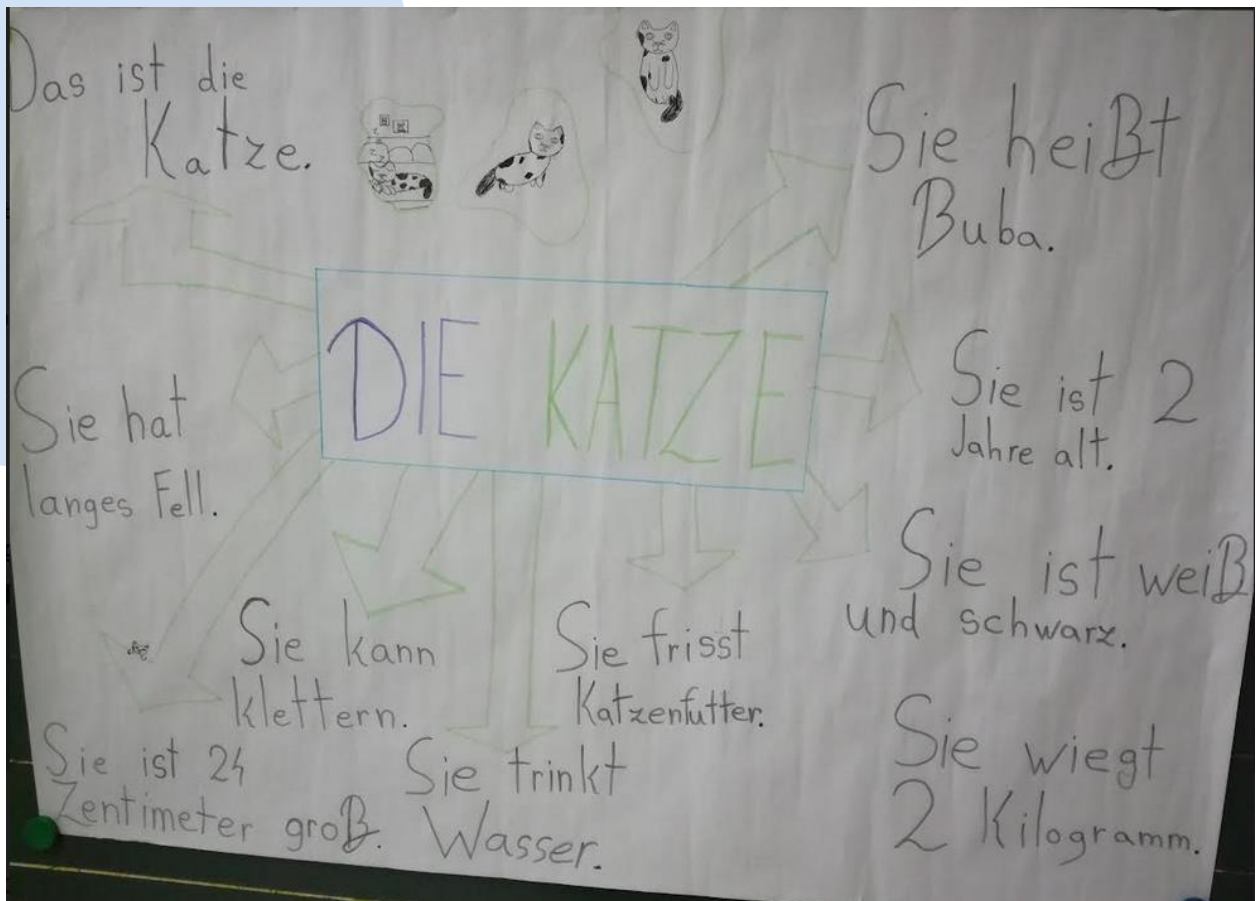 Das ist die
Katze.
Sie heißt
Buba.
DIE KATZE
Sie hat
langes Fell.
Sie ist 2
Jahre alt.
Sie ist weiß
und schwarz.
Sie kann
klettern.
Sie frisst
Katzenfutter.
Sie ist 24
Zentimeter groß.
Sie trinkt
Wasser.
Sie wiegt
2 Kilogramm.